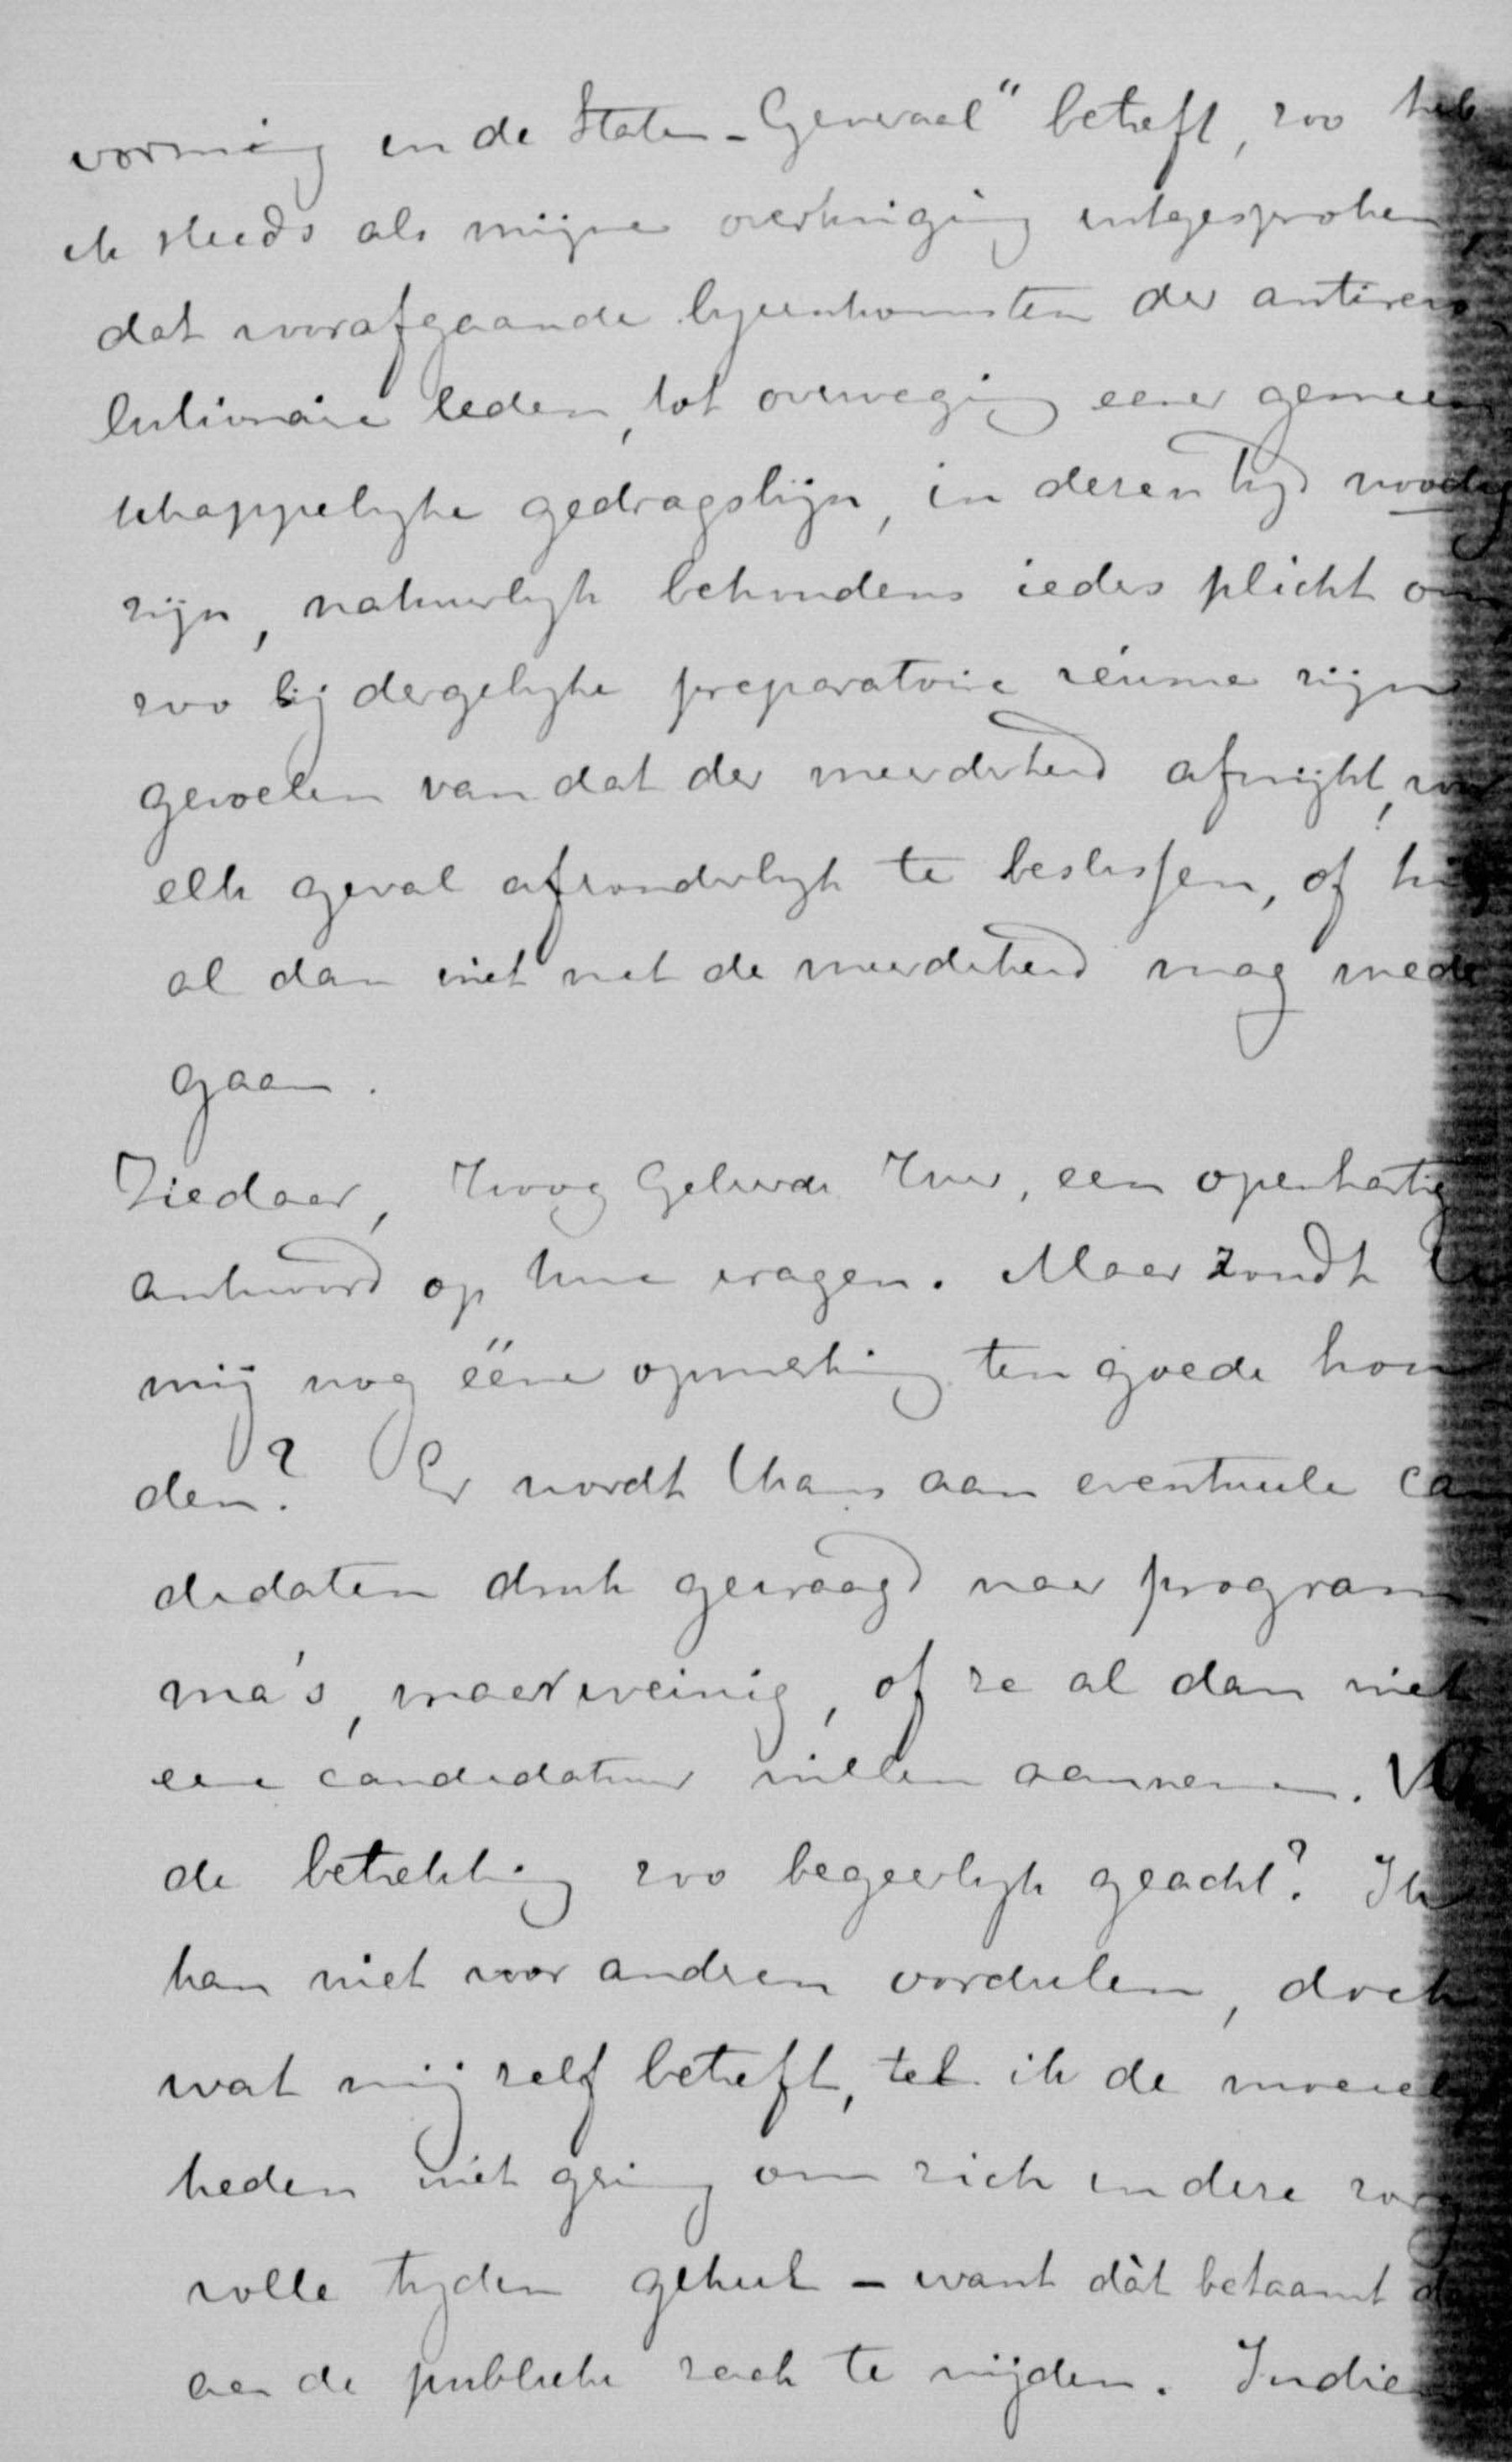 vorming in de Staten-Generaal" betreft, zoo heb
ik steeds als mijne overtuiging uitgesproken,
dat voorafgaande byeenkomsten der antirevo
lutionaire leden, tot overweging eener gemeen
schappelyke gedragslijn, in dezen tyd noodig
zijn, natuurlyk behoudens ieders plicht om,
zoo bij dergelyke preparatoire réunie zijn
gevoelen van dat der meerderheid afwijkt, voor
elk geval afzonderlyk te beslissen, of hij
al dan niet met de meerderheid mag mede
gaan.
Ziedaar, Hoog Geleerde Heer, een openhartig
antwoord op Uwe vragen. Maar zoudt U
mij nog ééne opmerking ten goede hou
den? Er wordt thans aan eventueele can
didaten druk gevraagd naar program
ma's, maar weinig, of ze al dan niet
eene candidatuur willen aannemen. Wordt
de betrekking zoo begeerlyk geacht? Ik
kan niet voor anderen oordeelen, doch
wat mij zelf betreft, tel ik de moeiely
heden niet gering om zich in deze zorg
volle tyden geheel – want dàt betaamt
aan de publieke zaak te wijden. Indien